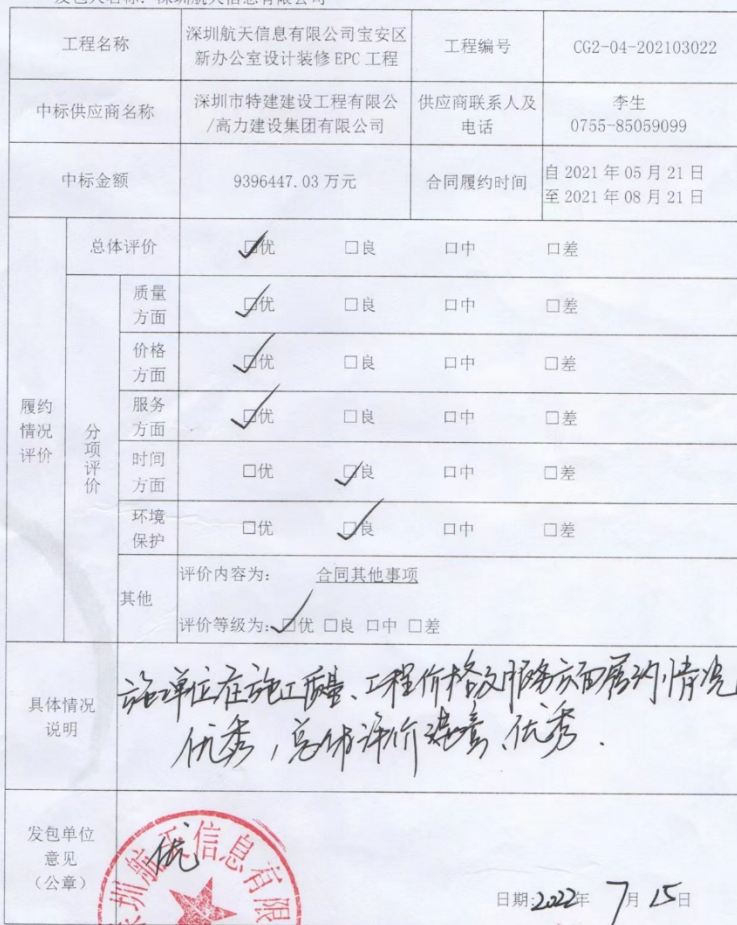 发包人名称：深圳航天信息有限公司
工程名称
深圳航天信息有限公司宝安区
新办公室设计装修 EPC 工程
工程编号
CG2-04-202103022
中标供应商名称
深圳市特建建设工程有限公
/高力建设集团有限公司
供应商联系人及
电话
李生
0755-85059099
中标金额
9396447.03 万元
合同履约时间
自 2021 年 05 月 21 日
至 2021 年 08 月 21 日
履约
情况
评价
总体评价
☑优 □良 口中 □差
分项评价
质量
方面
☑优 □良 口中 □差
价格
方面
☑优 □良 口中 □差
服务
方面
☑优 □良 口中 □差
时间
方面
□优 ☑良 口中 □差
环境
保护
□优 ☑良 口中 □差
其他
评价内容为： 合同其他事项
评价等级为：☑优 □良 口中 □差
具体情况
说明
施工单位在施工质量、工程价格及服务方面履约情况
优秀，总体评价 优秀．
发包单位
意见
（公章）
优
深圳航天信息有限
日期:2022年 7月 15日